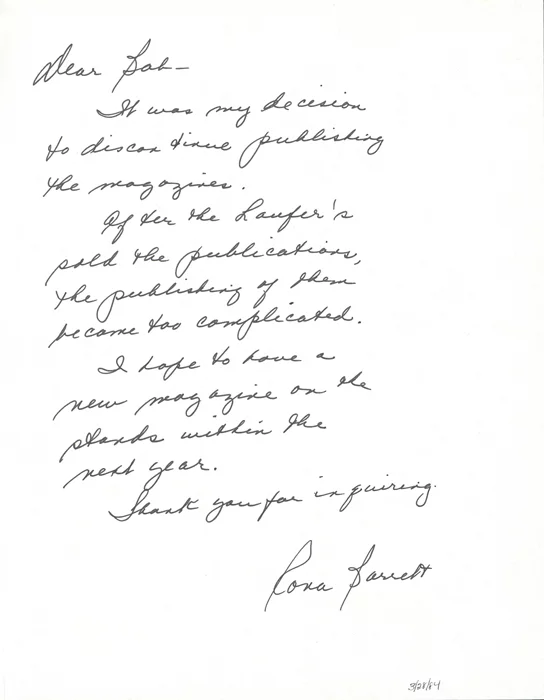 Dear Bob—
It was my decision
to discontinue publishing
the magazines.
After the Laufer's
sold the publications,
the publishing of them
became too complicated.
I hope to have a
new magazine on the
stands within the
next year.
Thank you for inquiring.
Rona Barrett
3/28/84